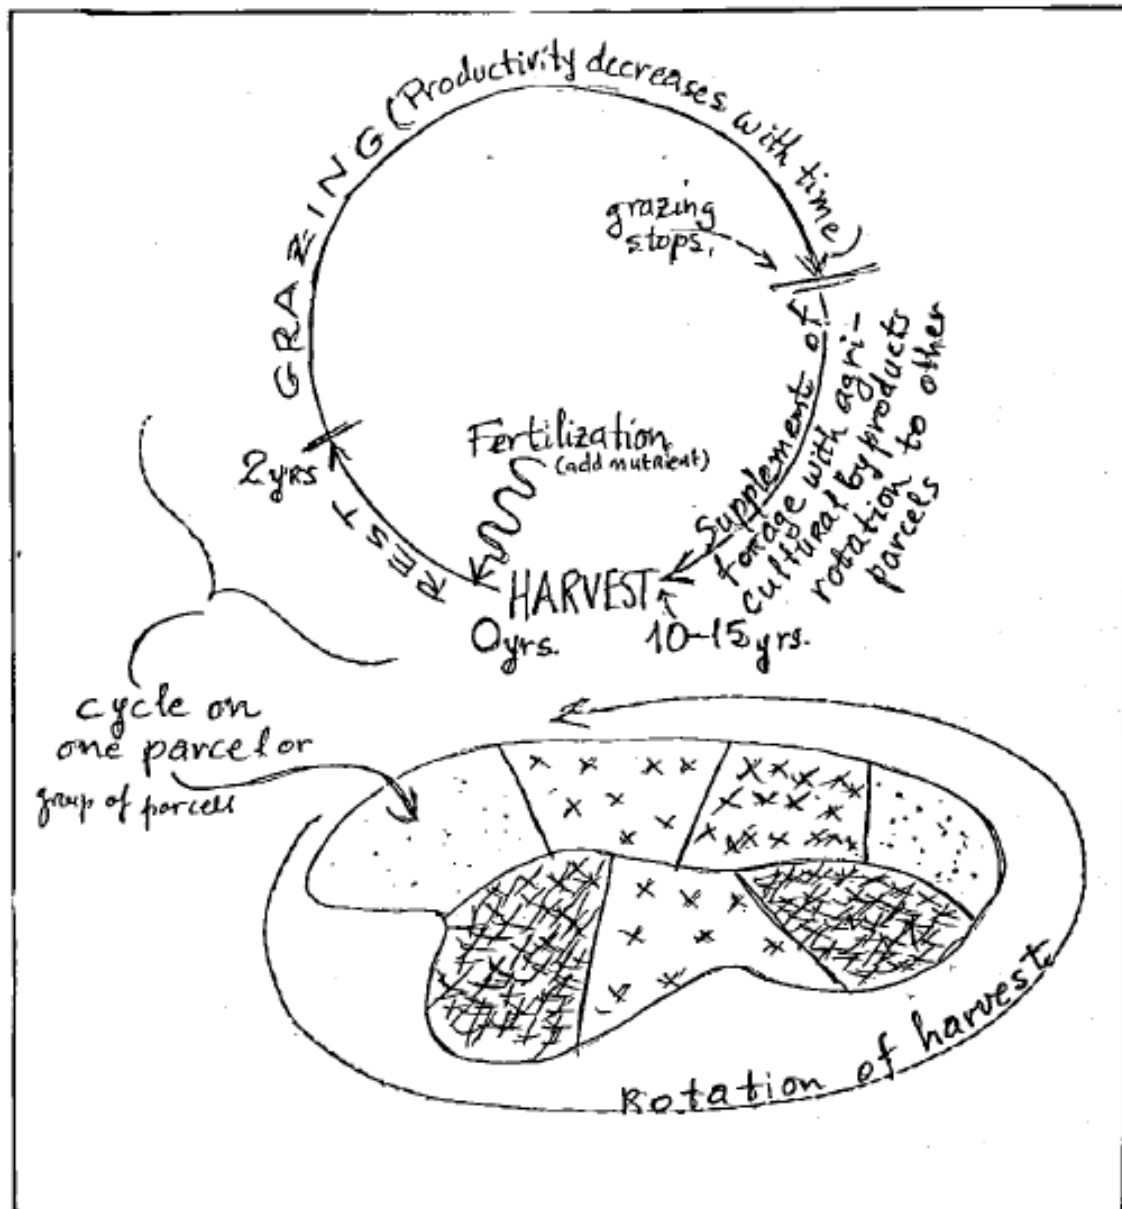 GRAZING (Productivity decreases with time)
grazing
stops.
Supplement of
forage with agri-
cultural by products
rotation to other
parcels
Fertilization
(add nutrient)
2yrs
REST
HARVEST
0yrs.
10-15yrs.
cycle on
one parcel or
group of parcels
Rotation of harvest